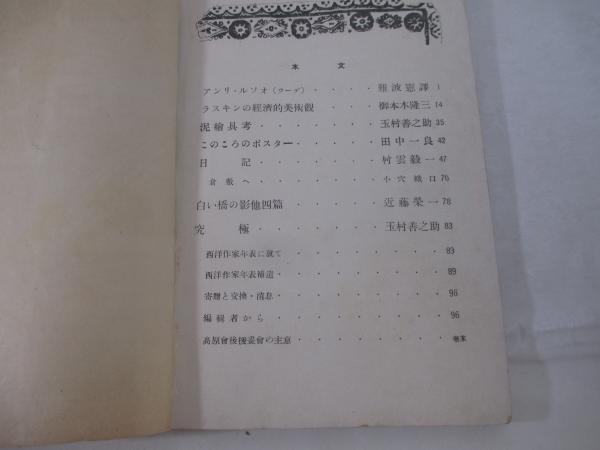 本文
アンリ・ルソオ(ウーデ)・・・・難波憲譯 1
ラスキンの經濟的美術觀・・・・御木本隆三 14
泥繪具考・・・・・・・玉村善之助 35
このころのポスター・・・・・田中一良 42
日記・・・・・・・村雲毅一 47
倉敷へ・・・・・・・小穴 76
白い橋の影他四篇・・・・・近藤榮一 78
究極・・・・・・・玉村善之助 83
西洋作家年表に就て・・・・・・83
西洋作家年表補遺・・・・・・・89
寄贈と交換・消息・・・・・・・96
編輯者から・・・・・・・・96
高原會後援畫會の主意・・・・・・・卷末